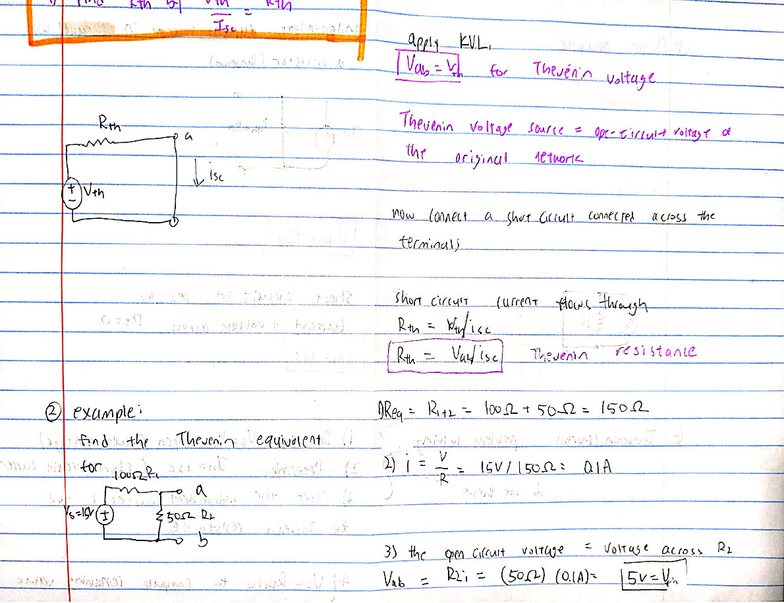 find Rth by Vth/Isc = Rth
apply KVL
Vab = Vth for Thevenin voltage
Thevenin voltage source = open-circuit voltage of
the original network
Rth
a
isc
+
-
Vth
now connect a short circuit connected across the
terminals
short circuit current flows through
Rth = Vth/isc
Rth = Vab/isc Thevenin resistance
② example:
find the Thevenin equivalent
for
100Ω R1
a
Vs=15V
50Ω R2
b
1) Req = R1+2 = 100Ω + 50Ω = 150Ω
2) i = V/R = 15V/150Ω = 0.1A
3) the open circuit voltage = voltage across R2
Vab = R2i = (50Ω)(0.1A) = 5V = Vth